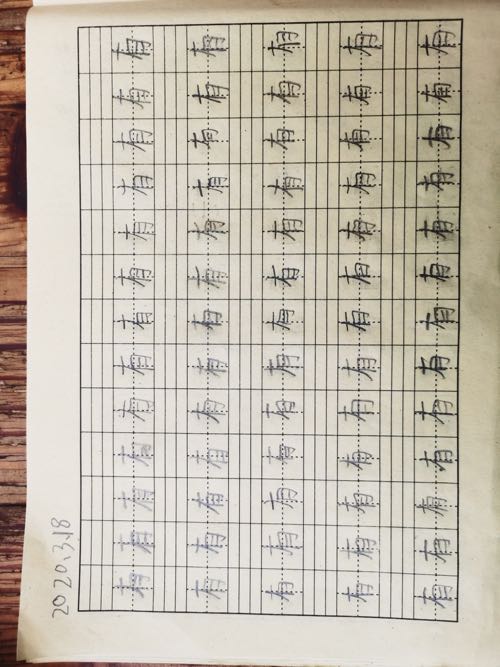 2020.3.18
有有有有有有有有有有有有有
有有有有有有有有有有有有有
有有有有有有有有有有有有有
有有有有有有有有有有有有有
有有有有有有有有有有有有有